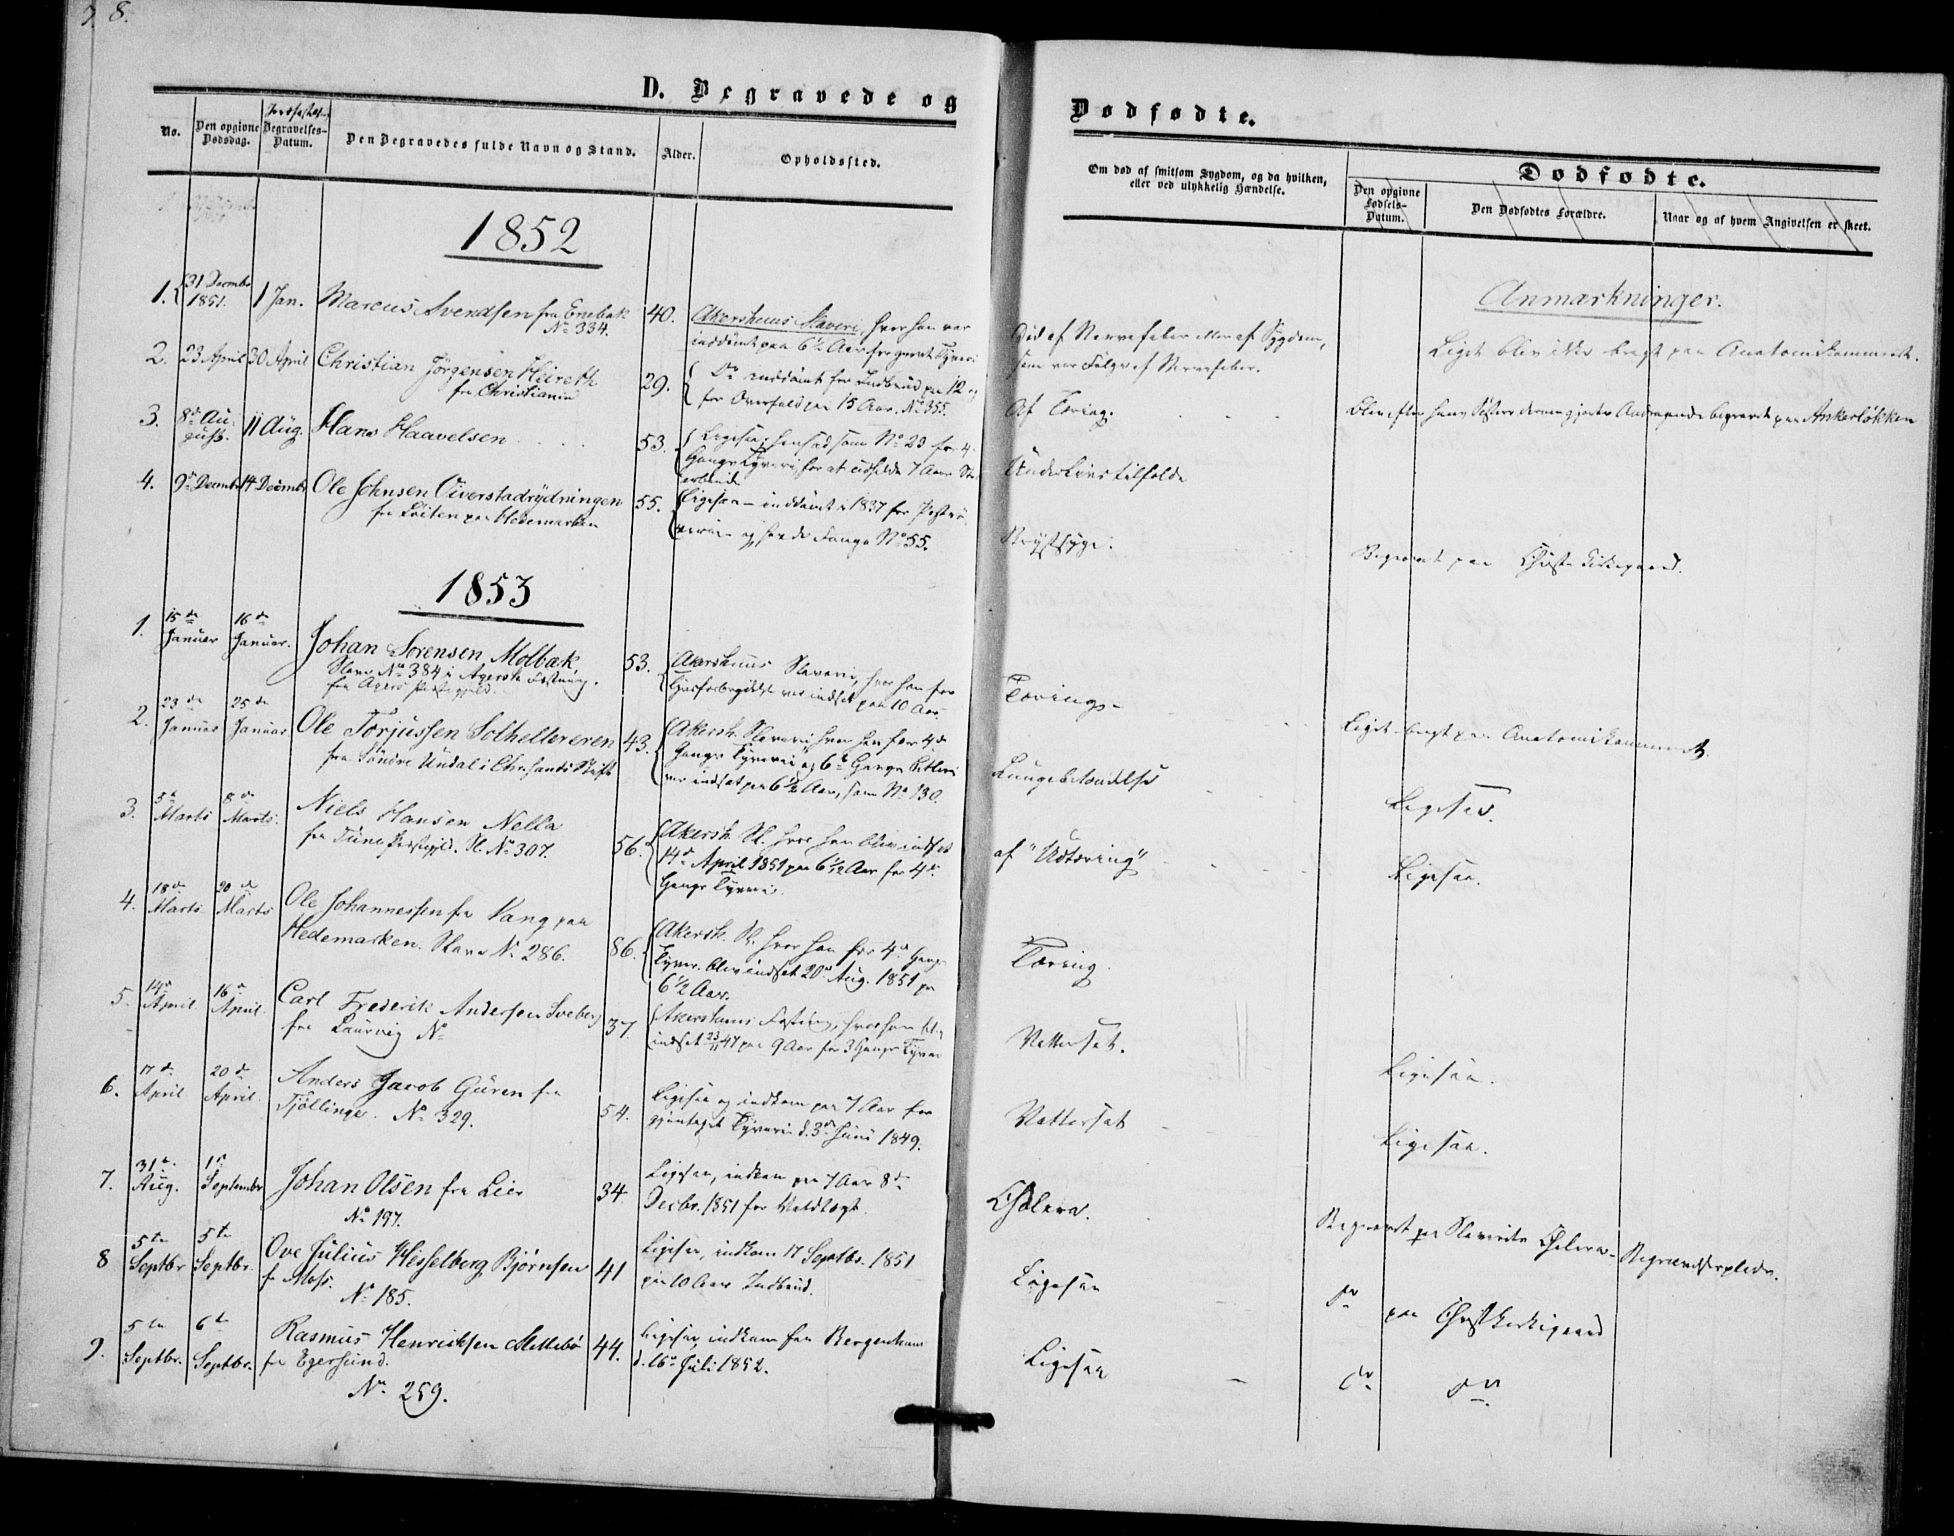 7. 8.
D. Begravede og
Jordfæstel-
No.
Den opgivne Dødsdag.
Begravelses-Datum.
Den Begravedes fulde Navn og Stand.
Alder.
Opholdssted.
1852
1. 31 Decembr 1851. 1 Jan. Marcus Svendsen fra Enebak 40. Akershuus Slaveri, hvor han var
No 334. inddømt paa 6½ Aar for gjent. Tyveri
2. 23 April 30 April Christian Jørgensen Heireth 29. Do inddømt for Indbrud paa 12 og
fra Christiania for Overfald paa 15 Aar. No 355.
3. 8de August. 11 Aug. Hans Haavelsen 53. Ligesaa, hensad som No 23 for 4
Gangs Tyveri, for at udholde 7 Aars
arbeide
4. 9de Decembr 14 Decembr Ole Johnsen Oiverstadrydningen 55. Ligesaa – inddømt i 1837 for
fra Løiten paa Hedemarken Fange No 55.
1853
1. 15de Januar 16de Januar. Johan Sørensen Molbæk, 53. Akershuus Slaveri, hvor han for
Slave No 384 i Agersh. Festning. var indsat paa 10 Aar.
fra Agers Præstegjeld.
2. 23de Januar 25de Januar Ole Torjussen Solhelleren 43. Akersh. Slaveri, hvor han for 4de
fra Søndre Undal i Chr.sands Stift Gangs Tyveri og 6te Gangs Betleri
var indsat paa 6½ Aar, som No 130.
3. 5te Marts 8de Marts. Niels Hansen Nella 56. Akersh. Sl. hvor han blev indsat
fra Tune Præstegjld. Sl. No 307. 14de April 1851 paa 6½ Aar for 4de
Gangs Tyveri.
4. 18de Marts 20de Marts Ole Johannessen fra Vang paa
Hedemarken. Slave No 286. 86. Akersh. Sl. hvor han for 4de Gangs
Tyveri blev indsat 20de Aug. 1851 paa
6½ Aar.
5. 14de April 16de April Carl Frederik Andersen Sveberg 37. Akershuus Festning, hvor han blev
fra Laurvig No indsat 23/11 47 paa 9 Aar for 3 Gangs Tyveri
6. 17de April 20de April. Anders Jacob Guren fra
Tjøllinge. No 329. 54. Ligesaa og indkom paa 7 Aar for
gjentaget Tyveri d. 3de Juni 1849.
7. 31te Aug. 1ste September Johan Olsen fra Lier 34. Ligesaa, indkom paa 7 Aar 8de
No 197. Decbr. 1851 for Voldtægt.
8 5te Septbr 5te Septbr. Ove Julius Hesselberg Bjørnsen 41 Ligesaa, indkom 17 Septbr. 1851
fr Moss. paa 10 Aar Indbrud.
No 185.
9. 5te Septbr. 6te Septbr. Rasmus Henriksen Mettebø 44. Ligesaa, indkom fra Bergenhuus
fra Egersund. d. 16de Juli 1852.
No 259.
Dødfødte.
Om død af smitsom Sygdom, og da hvilken, eller ved ulykkelig Hændelse.
Dødfødte.
Den opgivne Fødsels-Datum.
Den Dødfødtes Forældre.
Naar og af hvem Angivelsen er skeet.
Anmærkninger.
Død af Nervefeber eller af Sygdom, Liget blev ikke bragt paa Anatomikammeret.
som var Følge af Nervefeber.
Af Tæring. Blev efter hans Søsters derom gjorte Andragende begravet paa Ankerløkken
Underlivstilfælde
Brystsyge. Begravet paa Christ Kirkegaard.
Tærings- Liget bragt paa Anatomikammeret
Lungebetændelse Ligesaa.
af "Udtæring" Ligesaa.
Tæring.
Vattersot. Ligesaa.
Vattersot Ligesaa.
Cholera. Begravet paa Slaveriets Cholera-Begravelsesplads.
Ligesaa do paa Christ Kirkegaard
Ligesaa do do